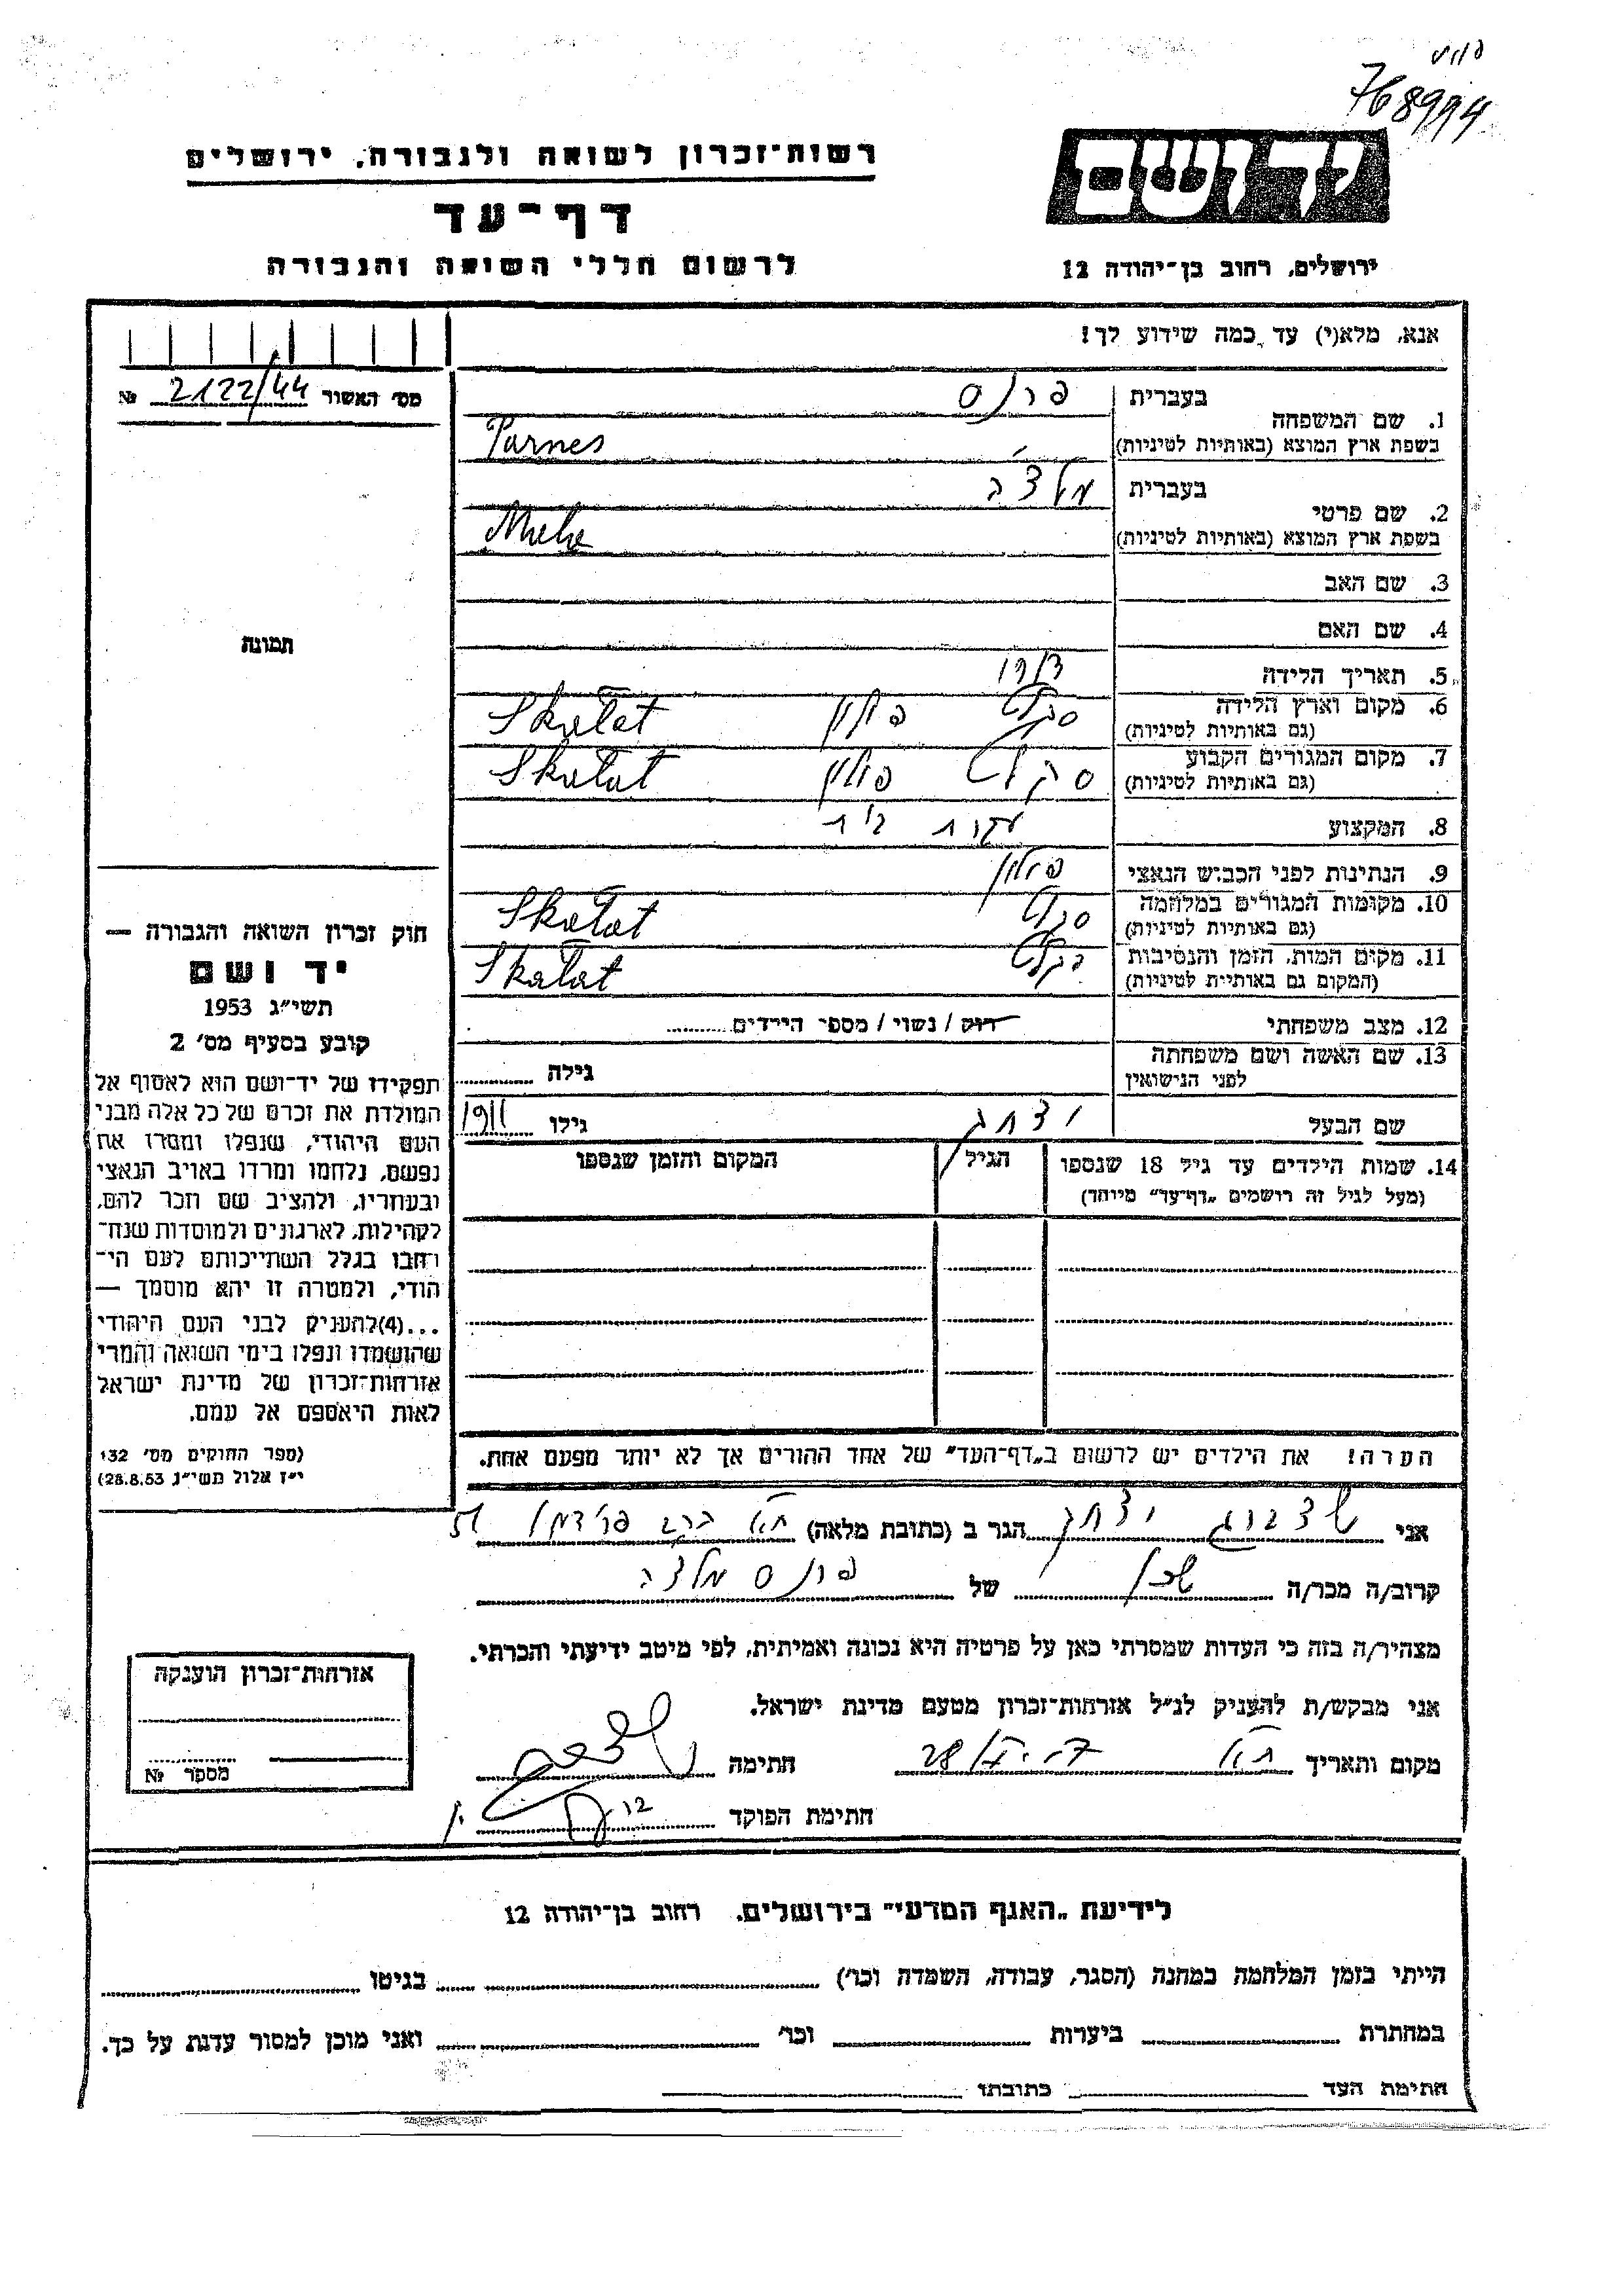 768994
יד ושם
רשות־זכרון לשואה ולגבורה, ירושלים
דף־עד
לרשום חללי השואה והגבורה
ירושלים, רחוב בן־יהודה 12
אנא, מלא(י) עד כמה שידוע לך!
מס' האשור 2122/44 №
1. שם המשפחה
בעברית פרנס
בשפת ארץ המוצא (באותיות לטיניות) Parnes
2. שם פרטי
בעברית
בשפת ארץ המוצא (באותיות לטיניות)
3. שם האב
4. שם האם
תמונה
5. תאריך הלידה
6. מקום וארץ הלידה סקלט פולין Skałat
(גם באותיות לטיניות)
7. מקום המגורים הקבוע סקלט פולין Skałat
(גם באותיות לטיניות)
8. המקצוע עקרת בית
9. הנתינות לפני הכבוש הנאצי פולין
10. מקומות המגורים במלחמה סקלט Skałat
(גם באותיות לטיניות)
11. מקום המות, הזמן והנסיבות Skałat
(המקום גם באותיות לטיניות)
12. מצב משפחתי רוק / נשוי / מספר הילדים
13. שם האשה ושם משפחתה
לפני הנישואין
גילה
שם הבעל יצחק גילו 1911
14. שמות הילדים עד גיל 18 שנספו הגיל המקום והזמן שנספו
(מעל לגיל זה רושמים "דף־עד" מיוחד)
הערה! את הילדים יש לרשום ב"דף־העד" של אחד ההורים אך לא יותר מפעם אחת.
חוק זכרון השואה והגבורה —
יד ושם
תשי"ג 1953
קובע בסעיף מס' 2
תפקידו של יד־ושם הוא לאסוף אל
המולדת את זכרם של כל אלה מבני
העם היהודי, שנפלו ומסרו את
נפשם, נלחמו ומרדו באויב הנאצי
ובעוזריו, ולהציב שם וזכר להם,
לקהילות, לארגונים ולמוסדות שנח־
רבו בגלל השתייכותם לעם הי־
הודי, ולמטרה זו יהא מוסמך —
...(4)להעניק לבני העם היהודי
שהושמדו ונפלו בימי השואה והמרי
אזרחות־זכרון של מדינת ישראל
לאות היאספם אל עמם.
(ספר החוקים מס' 132
י"ז אלול תשי"ג 28.8.53)
אני יצחק הגר ב (כתובת מלאה) ת"א
קרוב/ה מכר/ה שכן של פרנס
מצהיר/ה בזה כי העדות שמסרתי כאן על פרטיה היא נכונה ואמיתית, לפי מיטב ידיעתי והכרתי.
אני מבקש/ת להעניק לנ"ל אזרחות־זכרון מטעם מדינת ישראל.
מקום ותאריך ת"א חתימה
חתימת הפוקד
אזרחות־זכרון הוענקה
מספר №
לידיעת "האגף המדעי" בירושלים, רחוב בן־יהודה 12
הייתי בזמן המלחמה במחנה (הסגר, עבודה, השמדה וכו') בגיטו
במחתרת ביערות וכו' ואני מוכן למסור עדות על כך.
חתימת העד כתובתו